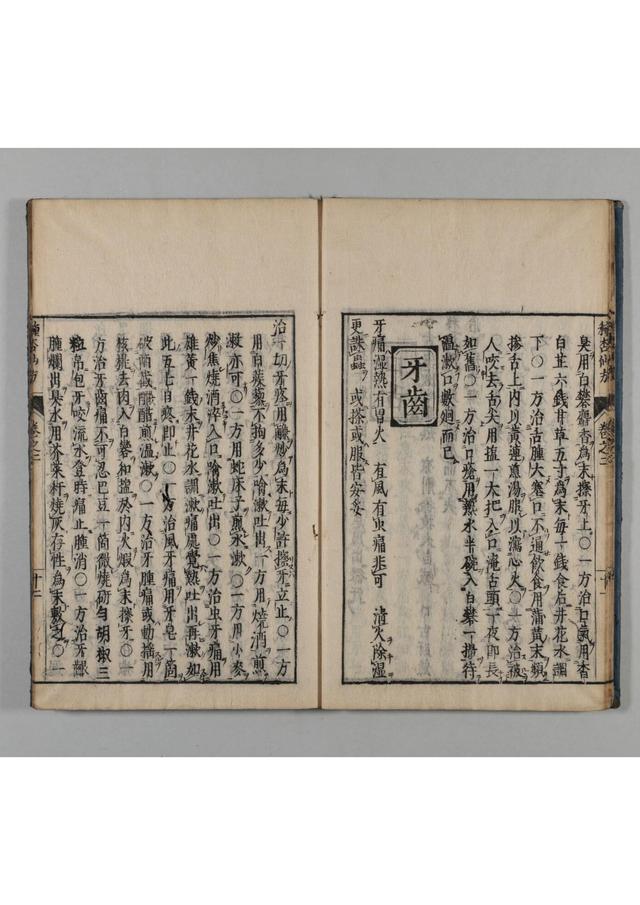 臭用白礬麝香爲末擦牙上○一方治口瘡用香
白芷六錢甘草五寸爲末毎一錢食后井花水調
下○一方治舌腫大塞口不通飲食用蒲黄末頻
摻舌上内以黄連煎湯服以瀉心火○一方治被
人咬去舌尖用 一大把入口淹舌頭一夜即長
如舊○一方治口瘡用熱水半碗入白礬一撈待
温漱口數廻而已
牙齒
牙痛湿熱有胃火 有風有虫痛非可 清火除湿
更誅蟲 或搽或服皆安妥
治一切牙疼用 炒爲末毎少許擦牙立止○一方
用白蒺藜不拘多少 漱吐出一方用焼酒煎
漱亦可○一方用蛇床子煎水漱○一方用小麥
炒焦焼酒淬入口 漱吐出○一方治虫牙痛用
雄黄一錢末井花水調漱痛處覺熱吐出再漱如
此五七日疼即止○一方治風牙痛用牙皂一箇
破 或醋煎温漱○一方治牙腫痛或動揺用
核桃去肉入白礬和塩於内火煅爲末擦牙○一
方治牙齒痛不可忍巴豆一箇微焼研匀胡椒三
粒帛包牙咬流水登時痛止腫消○一方治牙齦
腫爛出臭水用芥菜秆焼灰存性爲末敷之○一
卷之三
十二